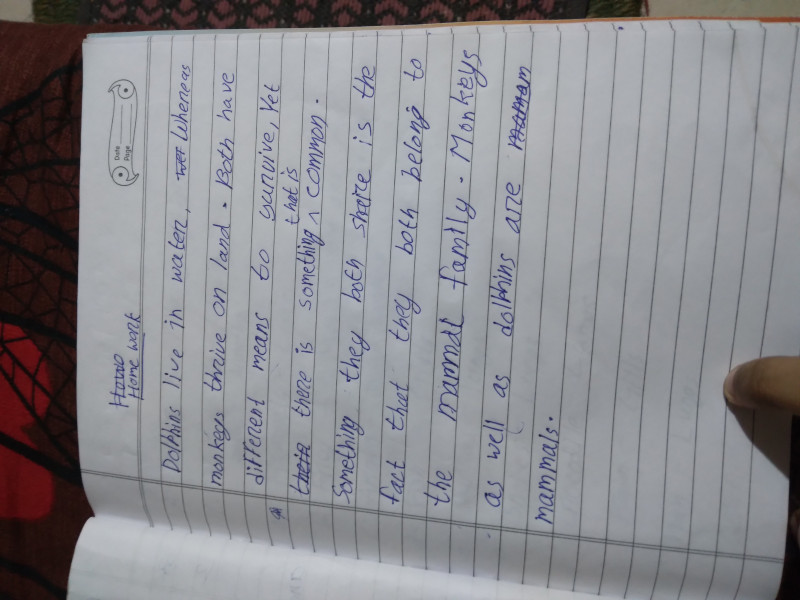 Date
Page
Home work
Dolphins live in water, Whereas
monkeys thrive on land. Both have
different means to survive, Yet
that is
there is something ^ common.
Something they both share is the
fact that they both belong to
the mammal family. Monkeys
as well as dolphins are
mammals.